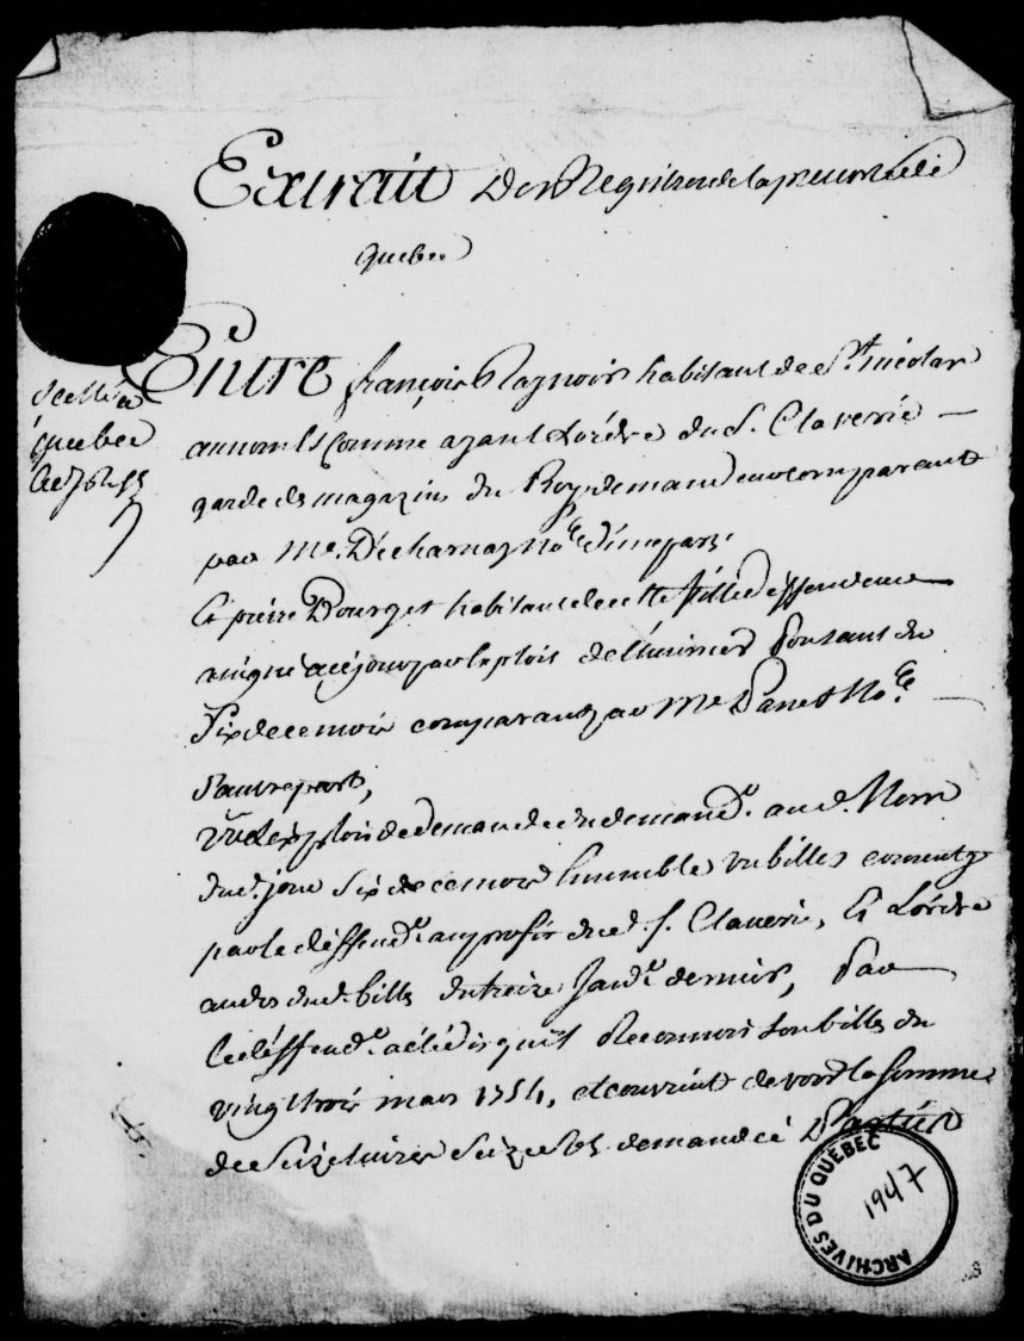 Extrait Des Registres de la prevosté de
Quebec
Scellé a
quebec
Entre françois habitant de St. nicolas
au nom & Comme ayant Lordre du S. Claverie
garde des magazins du Roy, demandeur comparant
par Me. Décharnay No.re d'une part.
Et pierre Dourget habitant de cette ville deffendeur
assigné a ce jour par lexploit de Portant du
Six de ce mois comparant par Me Panet No.re
d'autre part,
Vû lexploit de demande du demand.r aud. Nom
dud. jour Six de ce mois Ensemble un billet consenty
par le déffend.r au profit dud. S. Claverie, Et Lordre
au dos dud. billet du treize Janv.r dernier, Par
Le déffend.r a été dit quil Reconnoit Son billet du
vingt trois mars 1754, et convient devoir la Somme
de Seize livres Seize sols demandée Parties
ARCHIVES DU QUÉBEC
1947